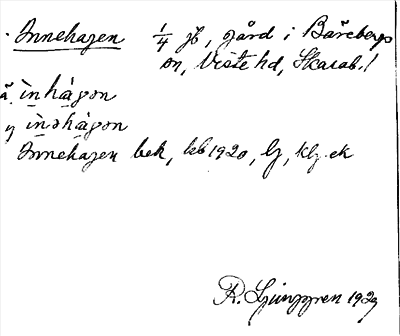 Annehagen ¼ jb, gård i Bärebergs
sn, Viste hd, Skarab. l
ä. ìnhàgon
y ìnəhàgon
Annehagen bek, kb 1920, lj, klj. ek
R. Ljunggren 1929